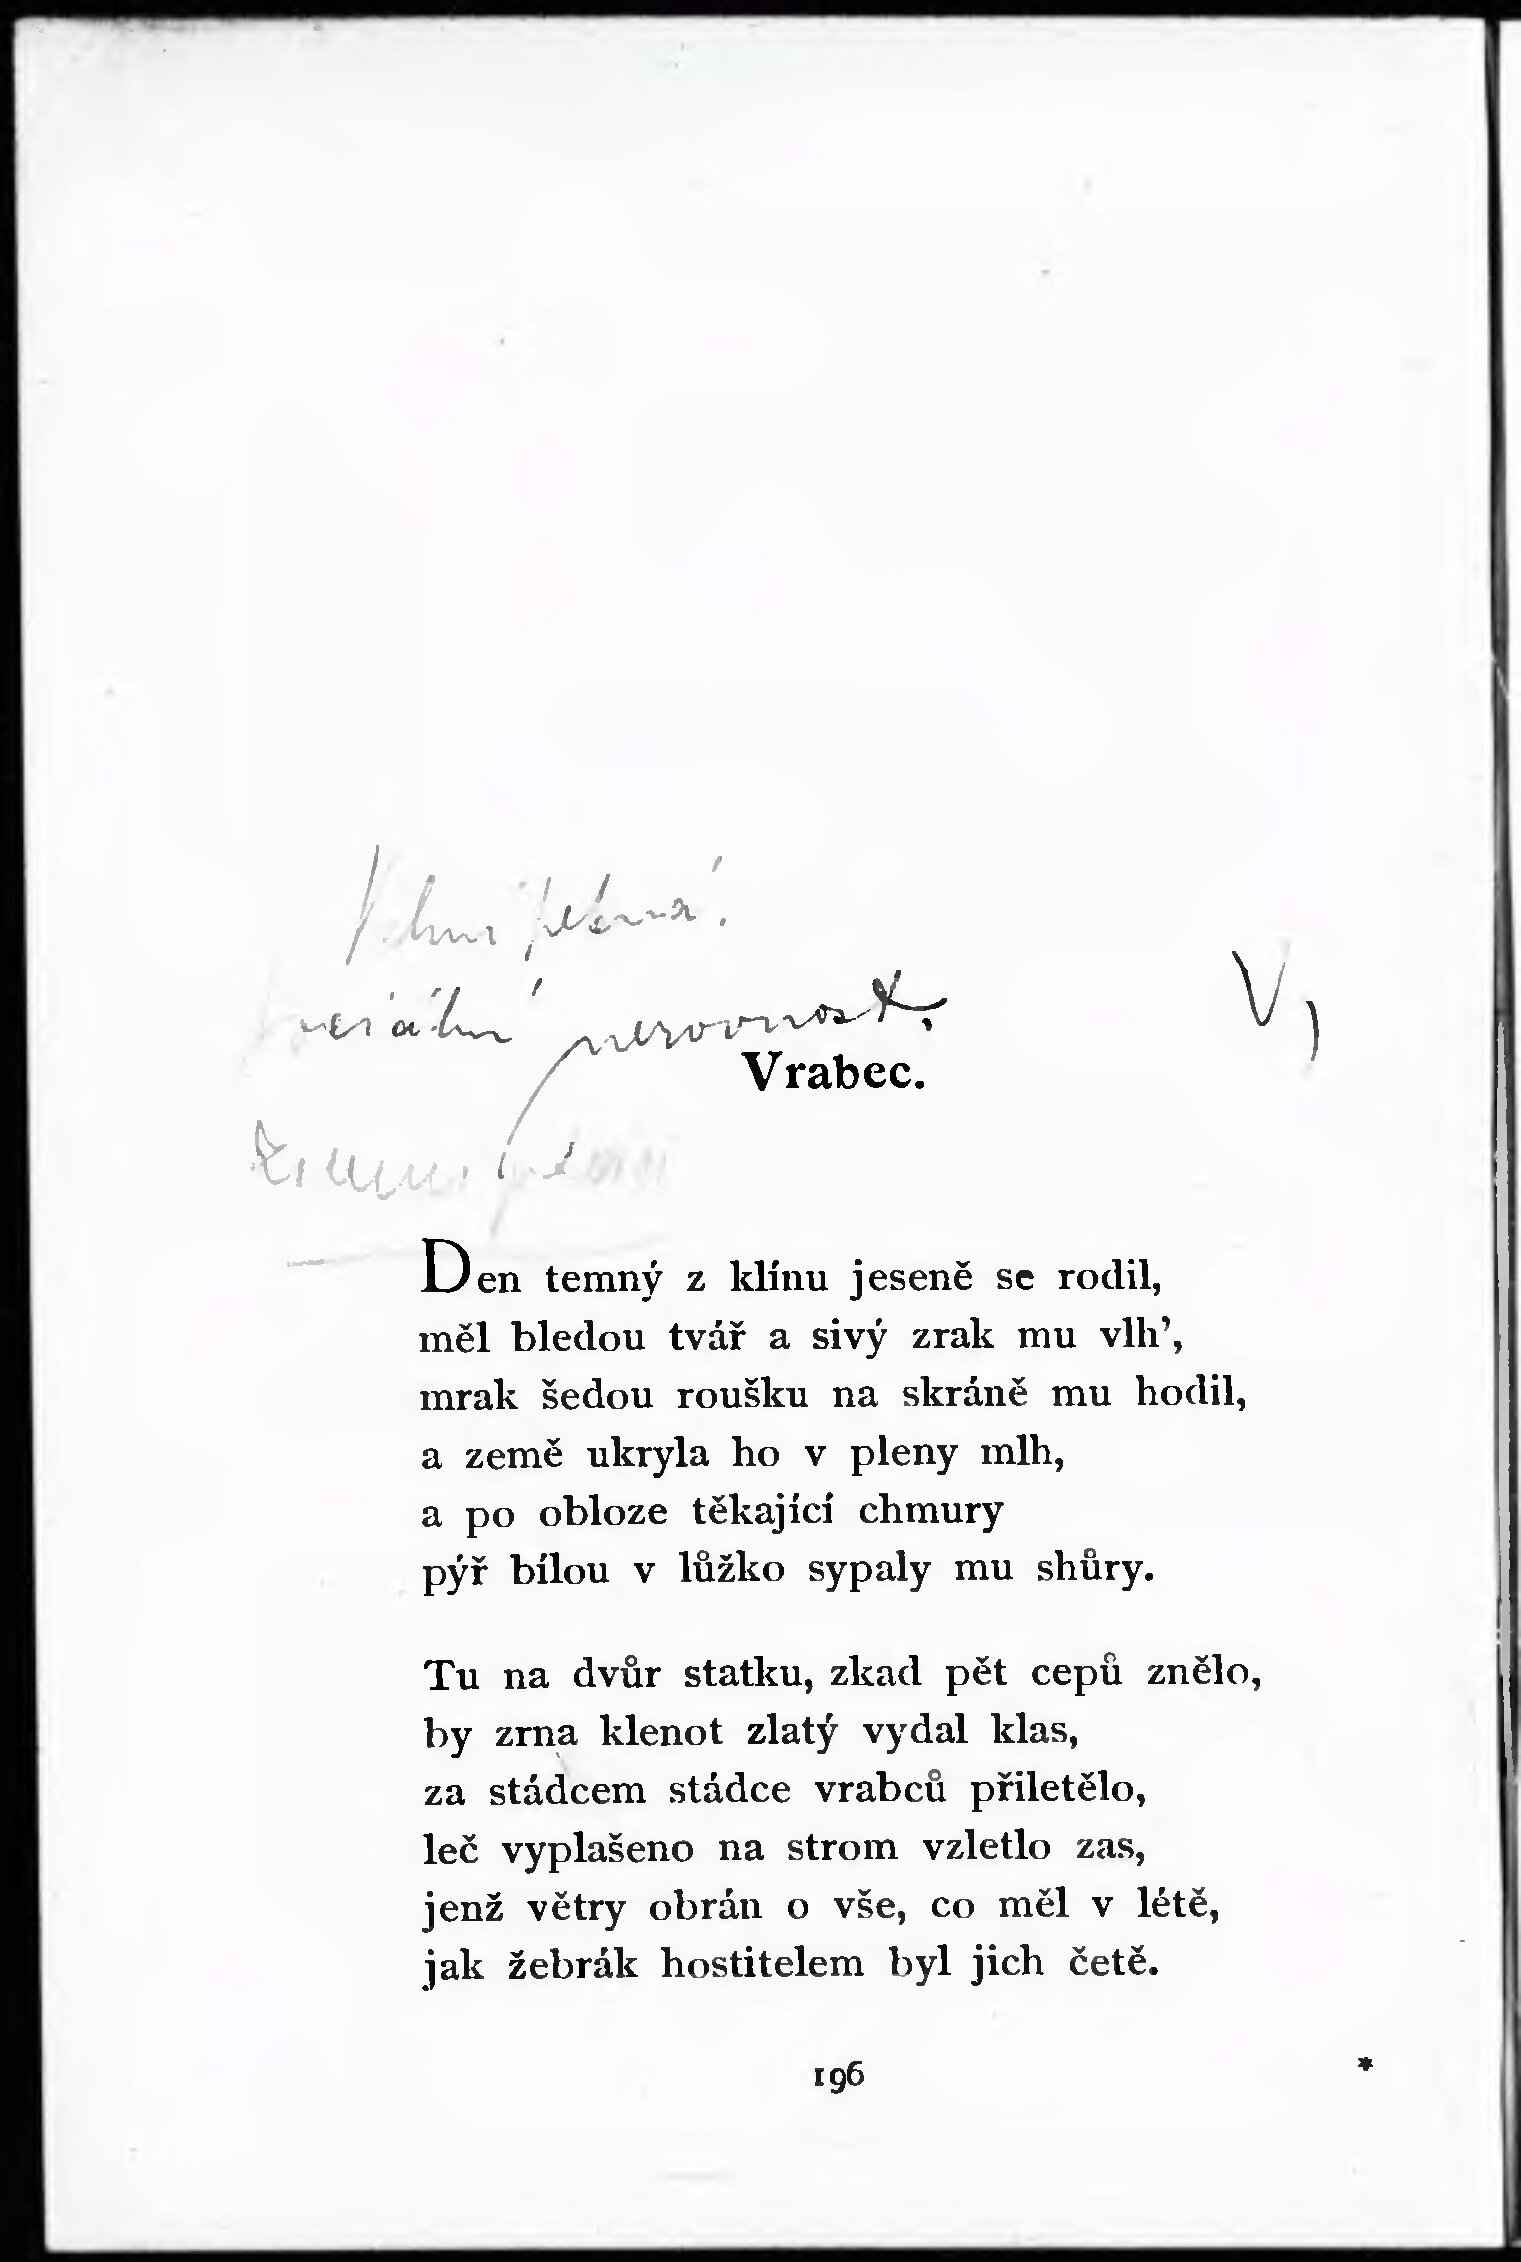 sociální nerovnost.
V)
Vrabec.
Den temný z klínu jeseně se rodil,
měl bledou tvář a sivý zrak mu vlh’,
mrak šedou roušku na skráně mu hodil,
a země ukryla ho v pleny mlh,
a po obloze těkající chmury
pýř bílou v lůžko sypaly mu shůry.
Tu na dvůr statku, zkad pět cepů znělo,
by zrna klenot zlatý vydal klas,
za stádcem stádce vrabců přiletělo,
leč vyplašeno na strom vzletlo zas,
jenž větry obrán o vše, co měl v létě,
jak žebrák hostitelem byl jich četě.
196
*